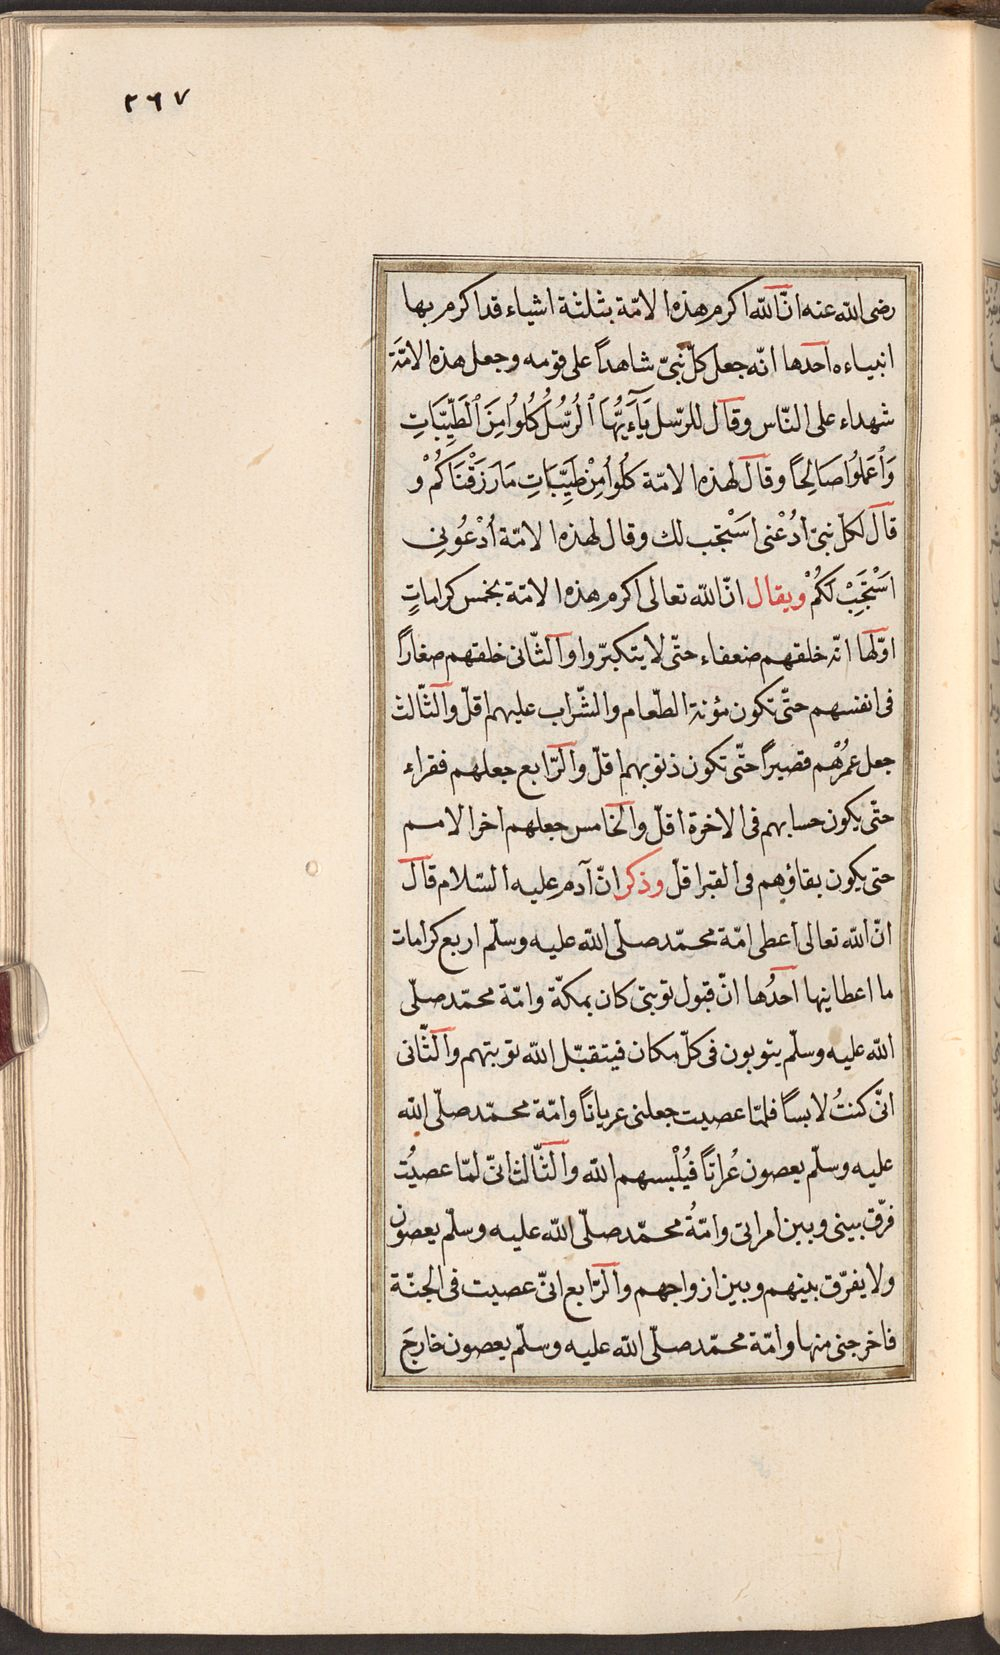 ٢٦٧
رضى اللّه عنه انّ اللّه اكرم هذه الامّة بثلثة اشياء قد اكرم بها
انبياءه احدها انّه جعل كلّ نبىّ شاهداً على قومه وجعل هذه الامّة
شهداء على النّاس وقال للرّسل يَآءَيُّهَا ٱلرُّسُلُ كُلُوا مِنَ ٱلطَّيِّبَاتِ
وَٱعْمَلُوا صَالِحًا وقال لهذه الامّة كُلُوا مِنْ طَيِّبَاتِ مَا رَزَقْنَاكُمْ و
قال لكلّ نبىّ اُدْعُنى اَسْتَجب لك وقال لهذه الامّة اُدْعُونِى
اَسْتَجِبْ لَكُمْ ويقال انّ اللّه تعالى اكرم هذه الامّة بخمس كراماتٍ
اوّلها انّه خلقهم ضعفاء حتّى لا يتكبّروا والثّانى خلقهم صغاراً
فى انفسهم حتّى تكون مؤنة الطّعام والشّراب عليهم اقلّ والثّالث
جعل عُمُرْهُم قصيراً حتّى تكون ذنوبهم اقلّ والرّابع جعلهم فقراء
حتّى يكون حسابهم فى الاخرة اقلّ والخامس جعلهم اخر الامم
حتى يكون بقاؤهم فى القبر اقلّ وذكر انّ آدم عليه السّلام قال
انّ اللّه تعالى اعطى امّة محمّد صلّى اللّه عليه وسلّم اربع كرامات
ما اعطانيها احدُها انّ قبول توبتى كان بمكّة وامّة محمّد صلّى
اللّه عليه وسلّم يتوبون فى كلّ مكان فيتقبّل اللّه توبتهم والثّانى
انّى كنتُ لابساً فلمّا عصيت جعلنى عرياناً وامّة محمّد صلّى اللّه
عليه وسلّم يعصون عُراتاً فيُلْبسهم اللّه والثّالث انّى لمّا عصيْتُ
فرّق بينى وبين امراتى وامّةُ محمّد صلّى اللّه عليه وسلّم يعصون
ولا يفرّق بينهم وبين ازواجهم والرّابع انّى عصيت فى الجنّة
فاخرجنى منها وامّة محمّد صلّى اللّه عليه وسلّم يعصون خارجَ